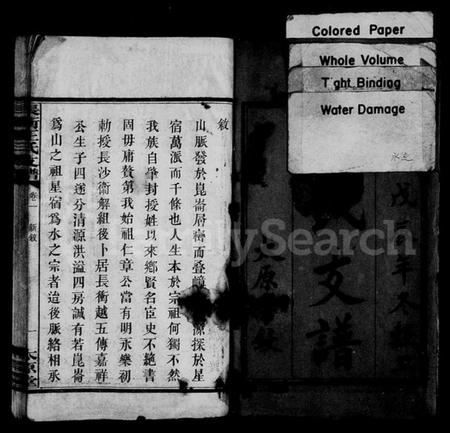 Colored Paper
Whole Volume
Tight Binding
Water Damage
水迹
敘
山脈發於崑崙層巒而叠嶂源探於星
宿萬派而千條也人生本於宗祖何獨不然
我族自肇封授姓以來鄉賢名臣史不絕書
固毋庸贅第我始祖仁章公當有明永樂初
勅授長沙衞解組後卜居長衡越五傳嘉祥
公生子四遂分清源洪溢四房誠有若崑崙
爲山之祖星宿爲水之宗者迨後脈絡相承
卷一
新敘
一
太原堂
戊
年冬
支譜
太原
敘
FamilySearch